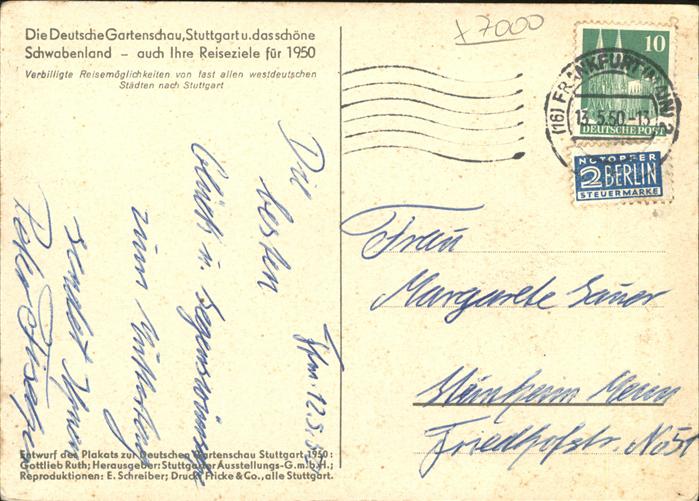 Die Deutsche Gartenschau, Stuttgart u. das schöne
Schwabenland – auch Ihre Reiseziele für 1950
Verbilligte Reisemöglichkeiten von fast allen westdeutschen
Städten nach Stuttgart
x7000
10
DEUTSCHE POST
(16) FRANKFURT (MAIN) 2
13.5.50.-13
NOTOPFER
2 BERLIN
STEUERMARKE
Ffm. 12.5.50
Die
besten
Glück u. Segenswünsche
zum Muttertag
sendet Ihnen
Peter
Frau
Margarete
Friedhofstr. No 51
Entwurf des Plakats zur Deutschen Gartenschau Stuttgart 1950:
Gottlieb Ruth; Herausgeber: Stuttgarter Ausstellungs-G.m.b.H.;
Reproduktionen: E. Schreiber; Druck: Fricke & Co., alle Stuttgart.